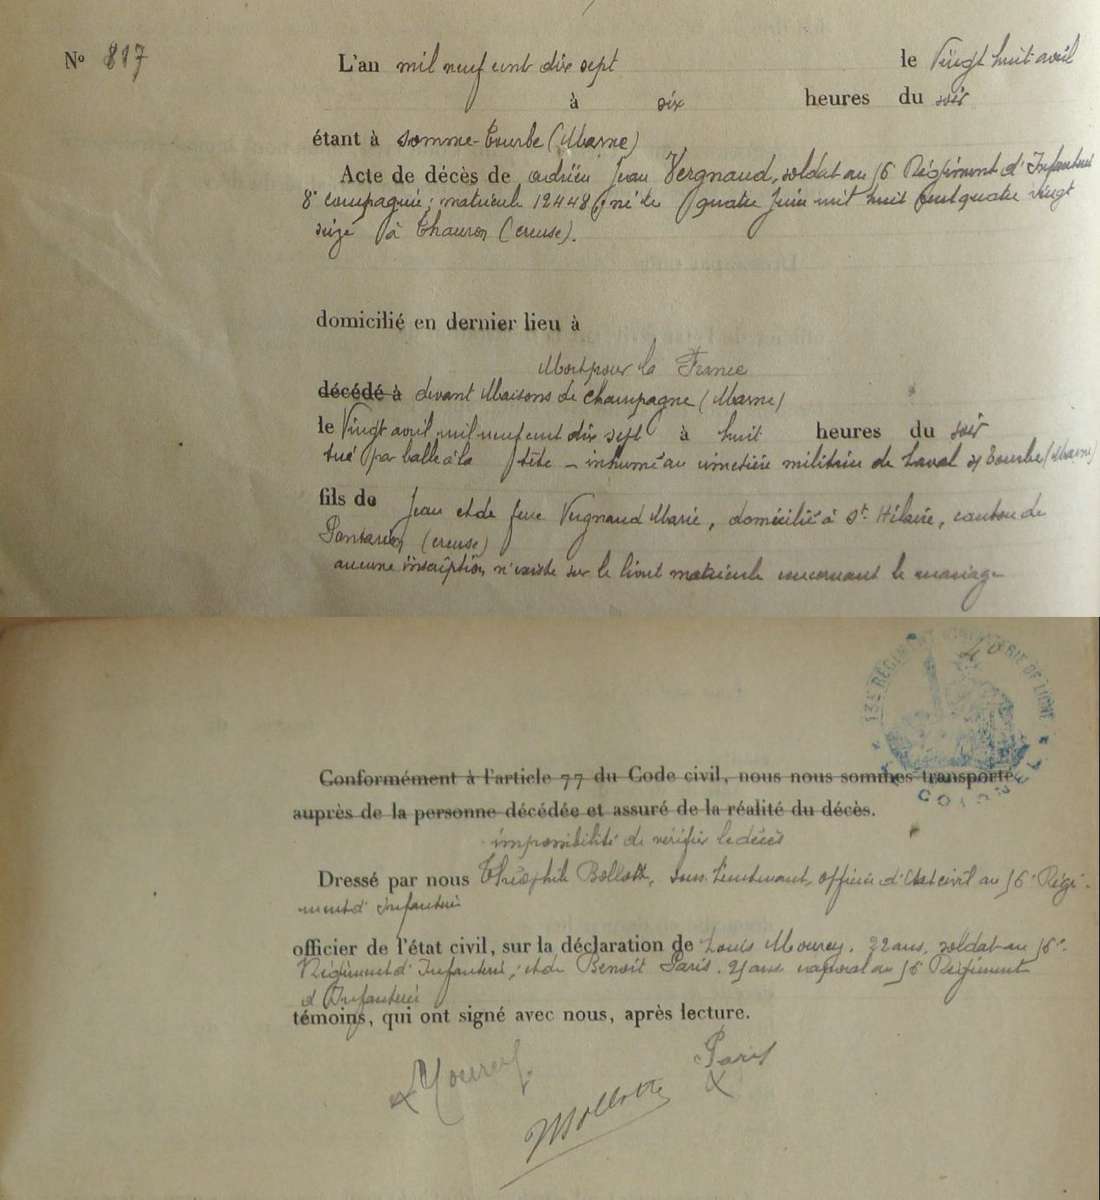 N° 817
L'an mil neuf cent dix sept le Vingt huit avril
à six heures du soir
étant à Somme-Tourbe (Marne)
Acte de décès de Adrien Jean Vergnaud, soldat au 56 Régiment d'Infanterie
8e compagnie; matricule 12448; né le quatre Juin mil huit cent quatre vingt
seize à Thauron (Creuse).
domicilié en dernier lieu à
Mort pour la France
décédé à devant Maisons de Champagne (Marne)
le Vingt avril mil neuf cent dix sept à huit heures du soir
tué par balle à la tête - inhumé au cimetière militaire de Laval s/ Tourbe (Marne)
fils de Jean et de feue Vergnaud Marie, domicilié à St Hilaire, canton de
Pontarion (Creuse)
aucune inscription n'existe sur le livret matricule concernant le mariage
RÉGIMENT D'INFANTERIE DE LIGNE
Conformément à l'article 77 du Code civil, nous nous sommes transporté
auprès de la personne décédée et assuré de la réalité du décès.
impossibilité de vérifier le décès
Dressé par nous Théophile Sous-Lieutenant, officier d'Etat civil au 56e Régi-
ment d'Infanterie
officier de l'état civil, sur la déclaration de Louis Mourey. 22 ans. soldat au 56e
Régiment d'Infanterie, et de Benoit Paris. ans caporal au 56 Régiment
d'Infanterie
témoins, qui ont signé avec nous, après lecture.
Mourey Paris